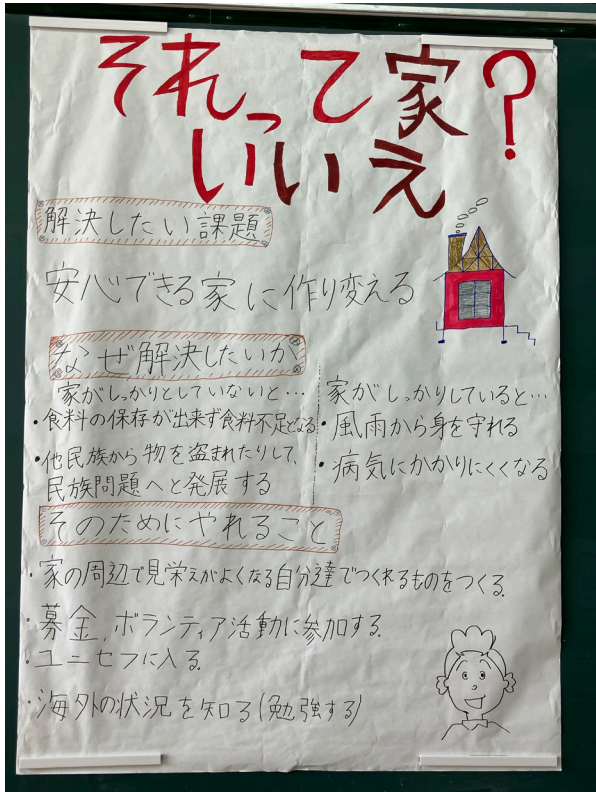 それって家?
いいえ
解決したい課題
安心できる家に作り変える
なぜ解決したいか
家がしっかりとしていないと…
・食料の保存が出来ず食料不足となる
・他民族から物を盗まれたりして、
民族問題へと発展する
家がしっかりしていると…
・風雨から身を守れる
・病気にかかりにくくなる
そのためにやれること
・家の周辺で見栄えがよくなる自分達でつくれるものをつくる。
・募金、ボランティア活動に参加する。
・ユニセフに入る。
・海外の状況を知る(勉強する)